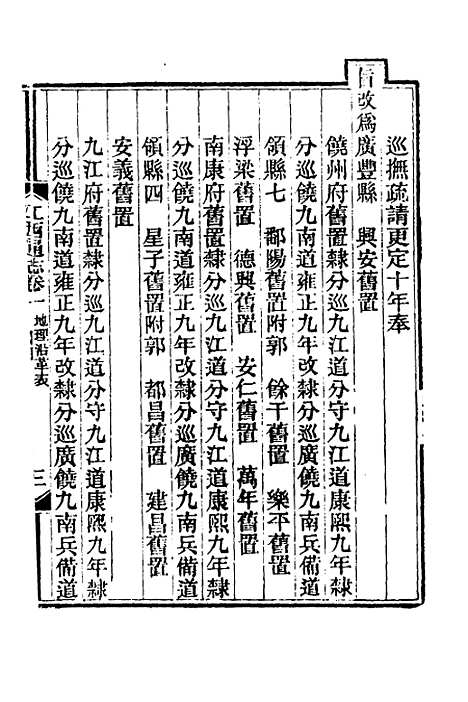 巡撫疏請更定十年奉
旨改爲廣豐縣　興安舊置
饒州府舊置隸分巡九江道分守九江道康熙九年隸
分巡饒九南道雍正九年改隸分巡廣饒九南兵備道
領縣七　鄱陽舊置附郭　餘干舊置　樂平舊置
浮梁舊置　德興舊置　安仁舊置　萬年舊置
南康府舊置隸分巡九江道分守九江道康熙九年隸
分巡饒九南道雍正九年改隸分巡廣饒九南兵備道
領縣四　星子舊置附郭　都昌舊置　建昌舊置
安義舊置
九江府舊置隸分巡九江道分守九江道康熙九年隸
分巡饒九南道雍正九年改隸分巡廣饒九南兵備道
江西通志卷一　地理沿革表　三